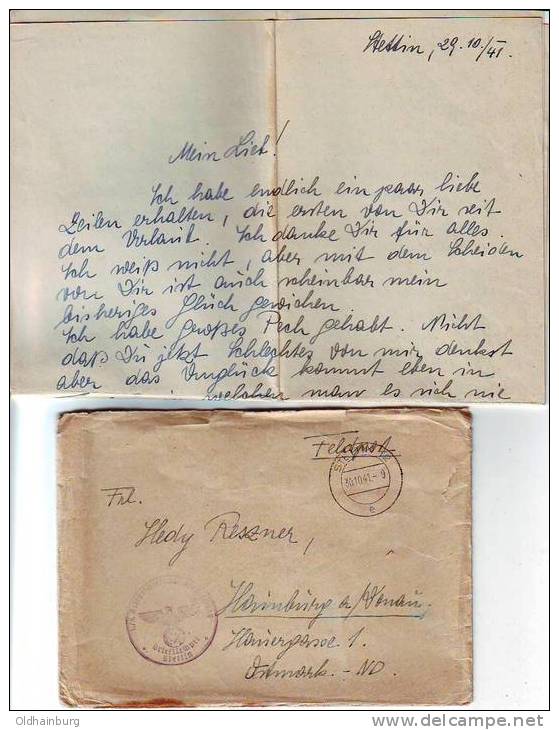 Stettin, 29.10./41.
Mein Lieb!
Ich habe endlich ein paar liebe
Zeilen erhalten, die ersten von Dir seit
dem Urlaub. Ich danke Dir für alles.
Ich weiß nicht, aber mit dem Scheiden
von Dir ist auch scheinbar mein
bisheriges Glück gewichen.
Ich habe großes Pech gehabt. Nicht
daß Du jetzt Schlechtes von mir denkst
aber das Unglück kommt eben in
welchen man es sich nie
Feldpost
30.10.41.-9
e
Frl.
Hedy Reszner,
Hainburg a/Donau.
Hauergasse 1.
Ostmark.-ND.
Briefstempel
Stettin
Oldhainburg
DELCAMPE.NET